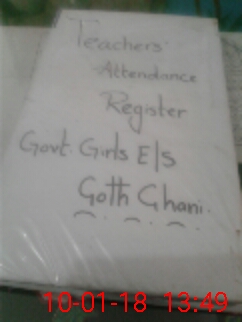 Teachers'
Attendance
Register
Govt. Girls E/S
Goth Ghani.
10-01-18 13:49